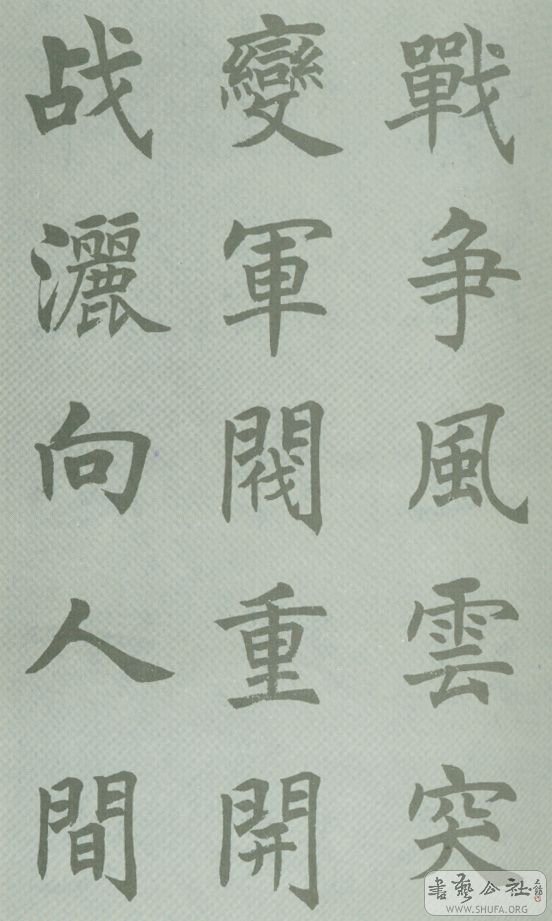 戰争風雲突
變軍閥重開
战灑向人間
書藝公社
WWW.SHUFA.ORG